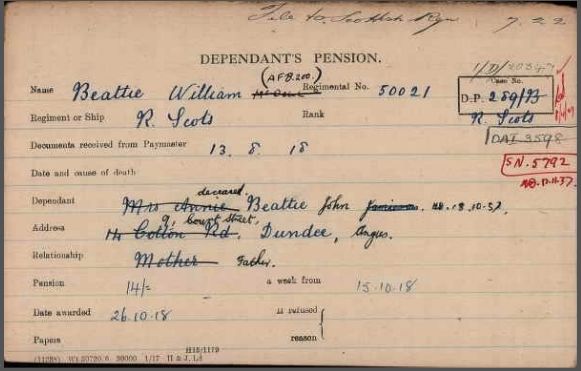 File to Scottish Rgn 7.22
DEPENDANT'S PENSION.
(AFB.200.)
Name Beattie William Regimental No. 50021
Case No.
D.P. 289/B
Regiment or Ship R. Scots Rank R. Scots
DAI 3598
Documents received from Paymaster 13. 8. 18
SN. 5792
Date and cause of death
deceased.
Dependant Mrs Annie Beattie John 18.10.37.
9, Court Street,
Address 14 Cotton Rd. Dundee, Angus.
Relationship Mother Father.
Pension 14/= a week from 15.10.18
Date awarded 26.10.18 If refused
Papers reason
H15/1179
(11288) Wt.50720/6 30000 1/17 H & J. Ld